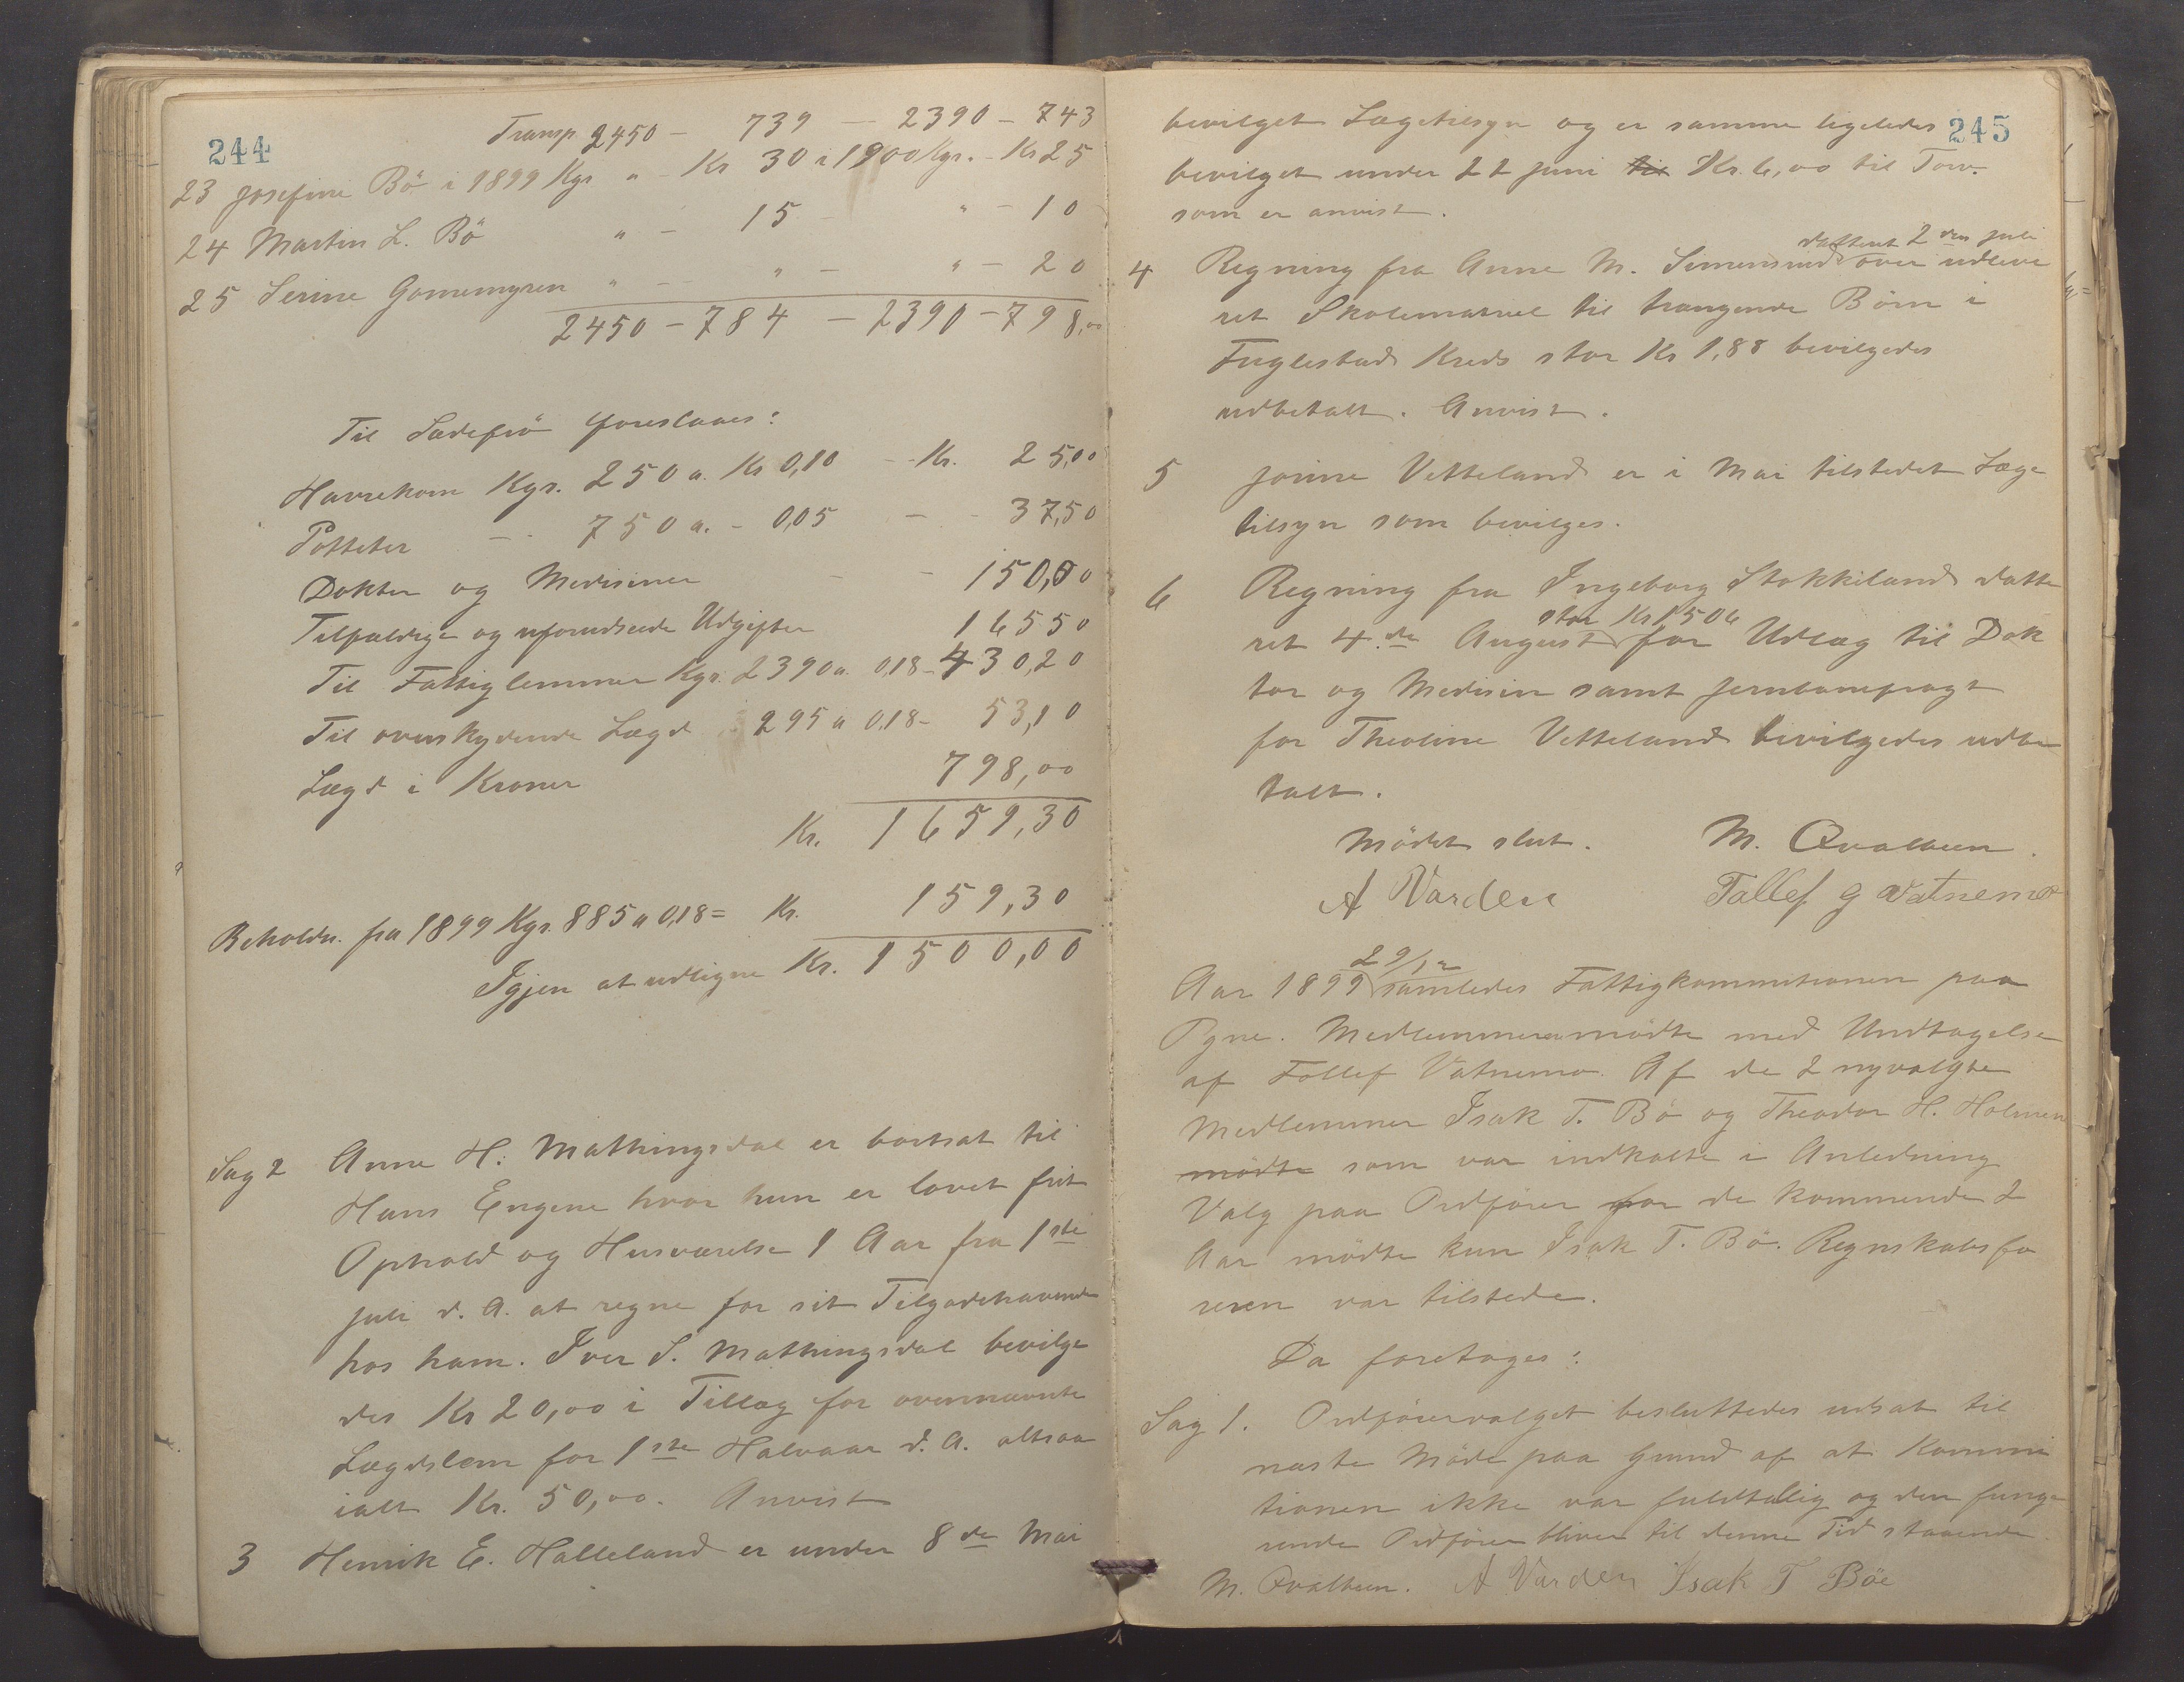 244
Transp 2450 - 739 - 2390 - 743
23 Josefine Bö i 1899 Kgr " - Kr 30 i 1900 Kgr. - Kr 25
24 Martin L. Bö " - 15 - " - 10
25 Serine Gomemyren " - " - " - 20
2450 - 784 - 2390 - 798,00
Til Sædefrö foreslaaes:
Havrekorn Kgr. 250 a. Kr 0,10 - Kr. 25,00
Potteter - 750 a. - 0,05 - - 37,50
Dokter og Medisiner - - 150,00
Tilfældige og uforudseede Udgifter 16550
Til Fattiglemmer Kgr. 2390 a. 0,18 - 430,20
Til overskydende Lægd 295 a 0,18 - 53,10
Lægd i Kroner 798,00
Kr. 1659,30
Beholdn. fra 1899 Kgr. 885 a 0,18 = Kr. 159,30
Igjen at udligne Kr. 1500,00
Sag 2 Anne H. Mathingsdal er bortsat til
Hans Engene hvor hun er lovet frit
Ophold og Husværelse 1 Aar fra 1ste
Juli d. A. at regne for sit Tilgodehavende
hos ham. Iver S. Mathingsdal bevilge
des Kr 20,00 i Tillæg for ovennævnte
Lægdslem for 1ste Halvaar d. A. altsaa
ialt Kr. 50,00. Anvist
3 Henrik E. Halleland er under 8de Mai
245
bevilget Lægetilsyn og er samme ligeledes
bevilget under 22 Juni til Kr. 6,00 til Torv.
som er anvist.
datteret 2den Juli
4 Regning fra Anne M. Simensud over udleve
ret Skolematriel til trængende Börn i
Fuglestad Kreds stor Kr 1,88 bevilgedes
udbetalt. Anvist.
5 Jorine Vetteland er i Mai tilstedet Læge
tilsyn som bevilges.
6 Regning fra Ingeborg Stokkeland datte
stor Kr 1506
ret 4.de August for Udlæg til Dok
tor og Medisin samt Jernbanefragt
for Theoline Vetteland bevilgedes udbe
talt.
Mödet slut. M. Qvalbein.
A Varden Tallef G Vatnemo
29/12
Aar 1899 samledes Fattigkommitionen paa
Ogne. Medlemmerne mödte med Undtagelse
af Tollef Vatnemo. Af de 2 nyvalgte
Medlemmer Isak T. Bö og Theodor H. Holmen
mödte som var indkalte i Anledning
Valg paa Ordförer for de kommende 2
Aar mödte kun Isak T. Bö. Regnskabsfö
reren var tilstede.
Da foretoges:
Sag 1. Ordförervalget besluttedes udsat til
næste Möde paa Grund af at Kommi
tionen ikke var fuldtallig og den funge
rende Ordförer bliver til denne Tid staaende
M. Qvalbein. A Varden Isak T Böe